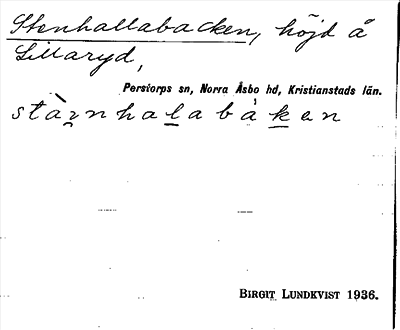 Stenhallabacken, höjd å
Lillaryd,
Perstorps sn, Norra Åsbo hd, Kristianstads län.
BIRGIT LUNDKVIST 1936.